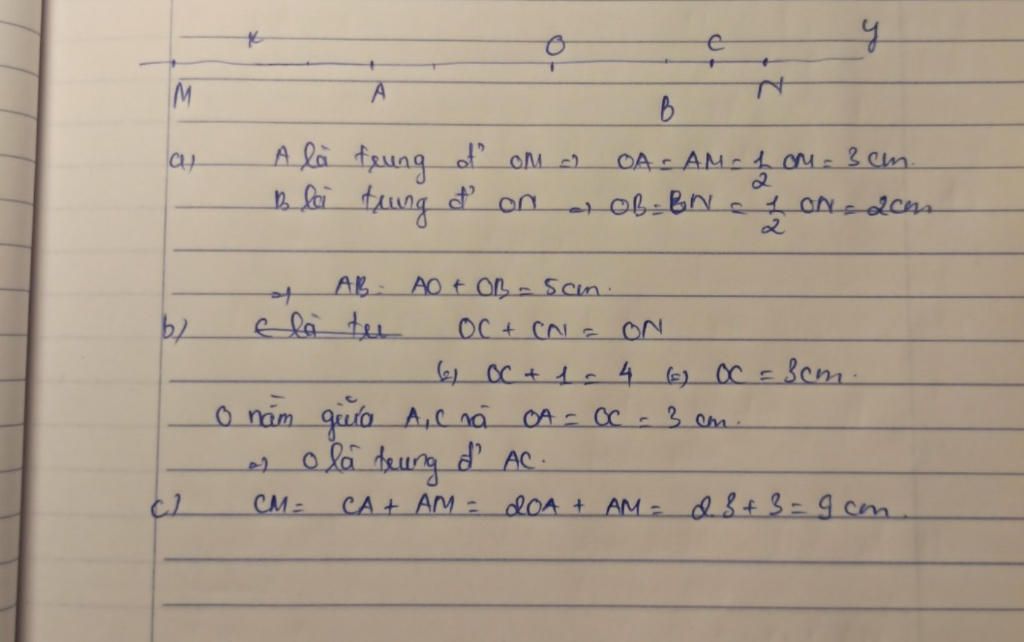 x O C y
M A B N
a) A là trung đ' OM => OA = AM = 1/2 OM = 3 cm.
B là trung đ' ON => OB = BN = 1/2 ON = 2cm
=> AB = AO + OB = 5 cm.
b) C là tru OC + CN = ON
(=) OC + 1 = 4 (=) OC = 3cm.
O nằm giữa A, C mà OA = OC = 3 cm.
=> O là trung đ' AC.
c) CM = CA + AM = 2OA + AM = 2.3 + 3 = 9 cm.